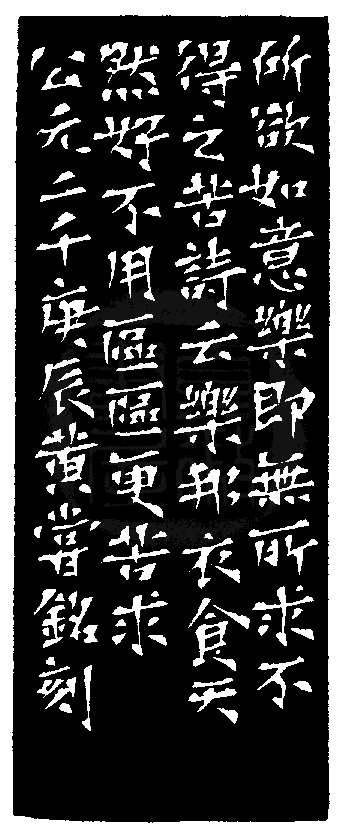 所欲如意樂即無所求不
得之苦詩云樂邦衣食天
然好不用區區更苦求
公元二千庚辰黄嘗銘刻